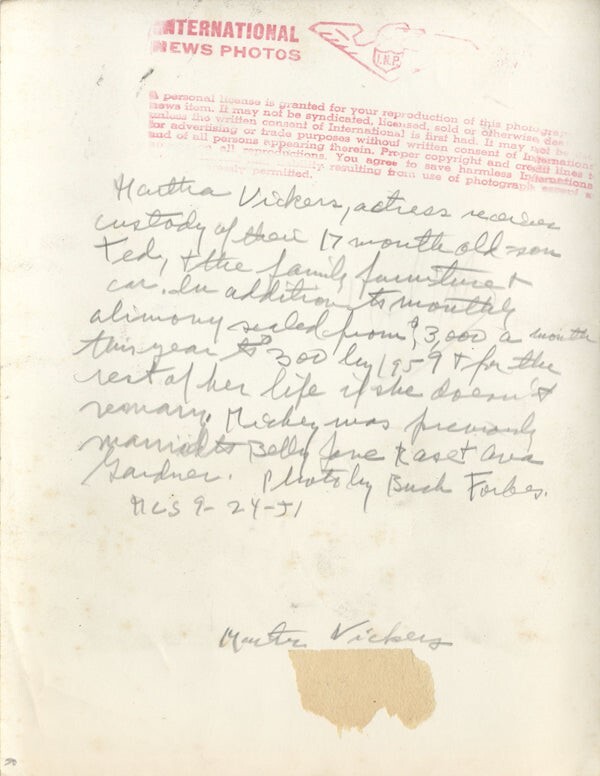 INTERNATIONAL
NEWS PHOTOS
I.N.P.
A personal license is granted for your reproduction of this photograph
news item. It may not be syndicated, licensed, sold or otherwise
unless the written consent of International is first had. It may not be
for advertising or trade purposes without written consent of International
and of all persons appearing therein. Proper copyright and credit lines
all reproductions. You agree to save harmless International
resulting from use of photograph except
permitted.
Martha Vickers, actress receives
custody of their 17 month old son
Ted, + the family furniture +
car. In addition to monthly
alimony scaled from $3,000 a month
this year to $300 by 1959 + for the
rest of her life if she doesn't
remarry. Mickey was previously
married to Betty Jane Rase + Ava
Gardner. Photo by Bush Forbes.
MCS 9-24-51
Martha Vickers